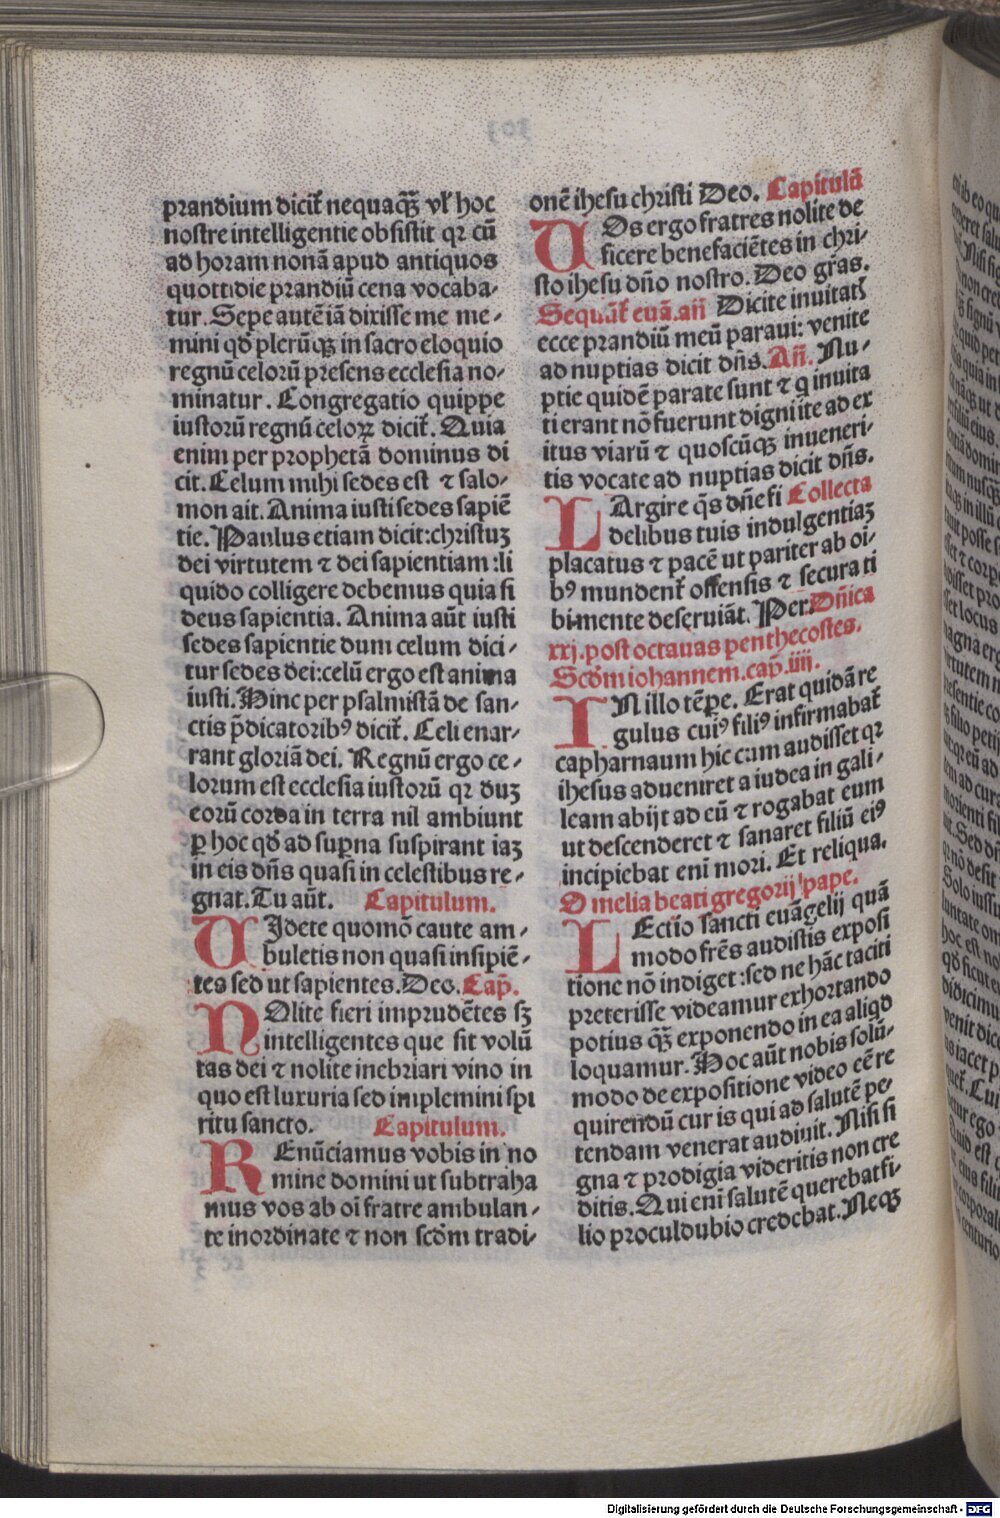 prandium dicit᷑ nequaqꝫ vl᷑ hoc
nostre intelligentie obsistit qꝛ cū
ad horam nonā apud antiquos
quottidie prandiū cena vocaba-
tur. Sepe autē iā dixisse me me-
mini qđ plerūqꝫ in sacro eloquio
regnū celorū presens ecclesia no-
minatur. Congregatio quippe
iustorū regnū celoꝝ dicit᷑. Quia
enim per prophetā dominus di
cit. Celum mihi sedes est ⁊ salo-
mon ait. Anima iusti sedes sapiē
tie. Paulus etiam dicit: christuꝫ
dei virtutem ⁊ dei sapientiam: li
quido colligere debemus quia si
deus sapientia. Anima aūt iusti
sedes sapientie dum celum dici-
tur sedes dei: celū ergo est anima
iusti. Hinc per psalmistā de san-
ctis p̄dicatoribꝰ dicit᷑. Celi enar-
rant gloriā dei. Regnū ergo ce-
lorum est ecclesia iustorū qꝛ duꝫ
eorū corda in terra nil ambiunt
ꝑ hoc qđ ad suꝑna suspirant iaꝫ
in eis dn̄s quasi in celestibus re-
gnat. Tu aūt. Capitulum.
UIdete quomō caute am-
buletis non quasi insipiē-
tes sed ut sapientes. Deo. Cap̄.
NOlite fieri imprudētes sꝫ
intelligentes que sit volū
tas dei ⁊ nolite inebriari vino in
quo est luxuria sed implemini spi
ritu sancto. Capitulum.
REnūciamus vobis in no
mine domini ut subtraha
mus vos ab oī fratre ambulan-
te inordinate ⁊ non scđm tradi-
onē ihesu christi Deo. Capitulū
UOs ergo fratres nolite de
ficere benefaciētes in chri-
sto ihesu dn̄o nostro. Deo gr̄as.
Sequūt᷑ euā. an̄ Dicite inuitat᷑
ecce prandiū meū paraui: venite
ad nuptias dicit dn̄s. An̄. Nu-
ptie quidē parate sunt ⁊ q inuita
ti erant nō fuerunt digni ite ad ex
itus viarū ⁊ quoscūqꝫ inueneri-
tis vocate ad nuptias dicit dn̄s.
LArgire q̄s dn̄e fi Collecta
delibus tuis indulgentiaꝫ
placatus ⁊ pacē ut pariter ab oi-
bꝰ mundent᷑ offensis ⁊ secura ti
bi mente deseruiāt. Per. Dn̄ica
xxj. post octauas penthecostes.
Scđm iohannem. cap̄. iiij.
IN illo tēꝑe. Erat quidā re
gulus cuiꝰ filiꝰ infirmabat᷑
capharnaum hic cum audisset qꝛ
ihesus adueniret a iudea in gali-
leam abijt ad eū ⁊ rogabat eum
ut descenderet ⁊ sanaret filiū eiꝰ
incipiebat eni᷑ mori. Et reliqua.
Omelia beati gregorij pape.
LEctio sancti euāgelij quā
modo fr̄es audistis exposi
tione nō indiget: sed ne hāc taciti
preterisse videamur exhortando
potius qꝫ exponendo in ea aliqđ
loquamur. Hoc aūt nobis solū-
modo de expositione video eē re
quirendū cur is qui ad salutē pe-
tendam venerat audiuit. Nisi si
gna ⁊ prodigia videritis non cre
ditis. Qui eni᷑ salutē querebat fi-
lio proculdubio credebat. Neqꝫ
Digitalisierung gefördert durch die Deutsche Forschungsgemeinschaft - DFG